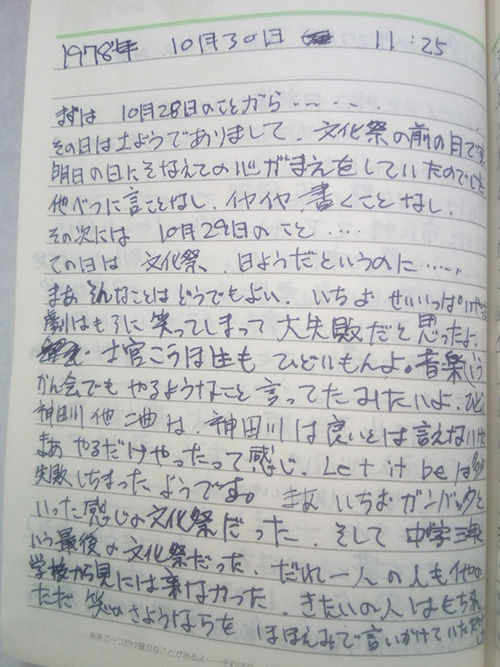 1978年 10月30日 11:25
まずは 10月28日のことから‥‥‥
その日は土ようでありまして、文化祭の前の日です。
明日の日にそなえての心がまえをしていたのでした
他べつに言ことなし、イヤイヤ、書くことなし。
その次には 10月29日のこと‥‥
この日は 文化祭、日ようだというのに‥‥
まあ そんなことは どうでもよい。いちお せいいっぱい
劇はもろに笑ってしまって大失敗だと思ったよ。
ひどいもんよ。音楽
かん会でも やるようなこと 言ってたみたいよ。
神田川他二曲は、神田川は良いとは言えないけど
まあ やるだけやったって感じ。Let it beは
失敗しちまったようです。まあ いちおガンバッタと
いった感じの文化祭だった。そして 中学三年と
いう最後の文化祭だった。だれ一人の人も他の
学校から見には来なかった。きたいの人はもち
ただ 笑いのさようならを ほほえみで言いかけていた
未来で一つだけ確かなことがあるよ‥‥